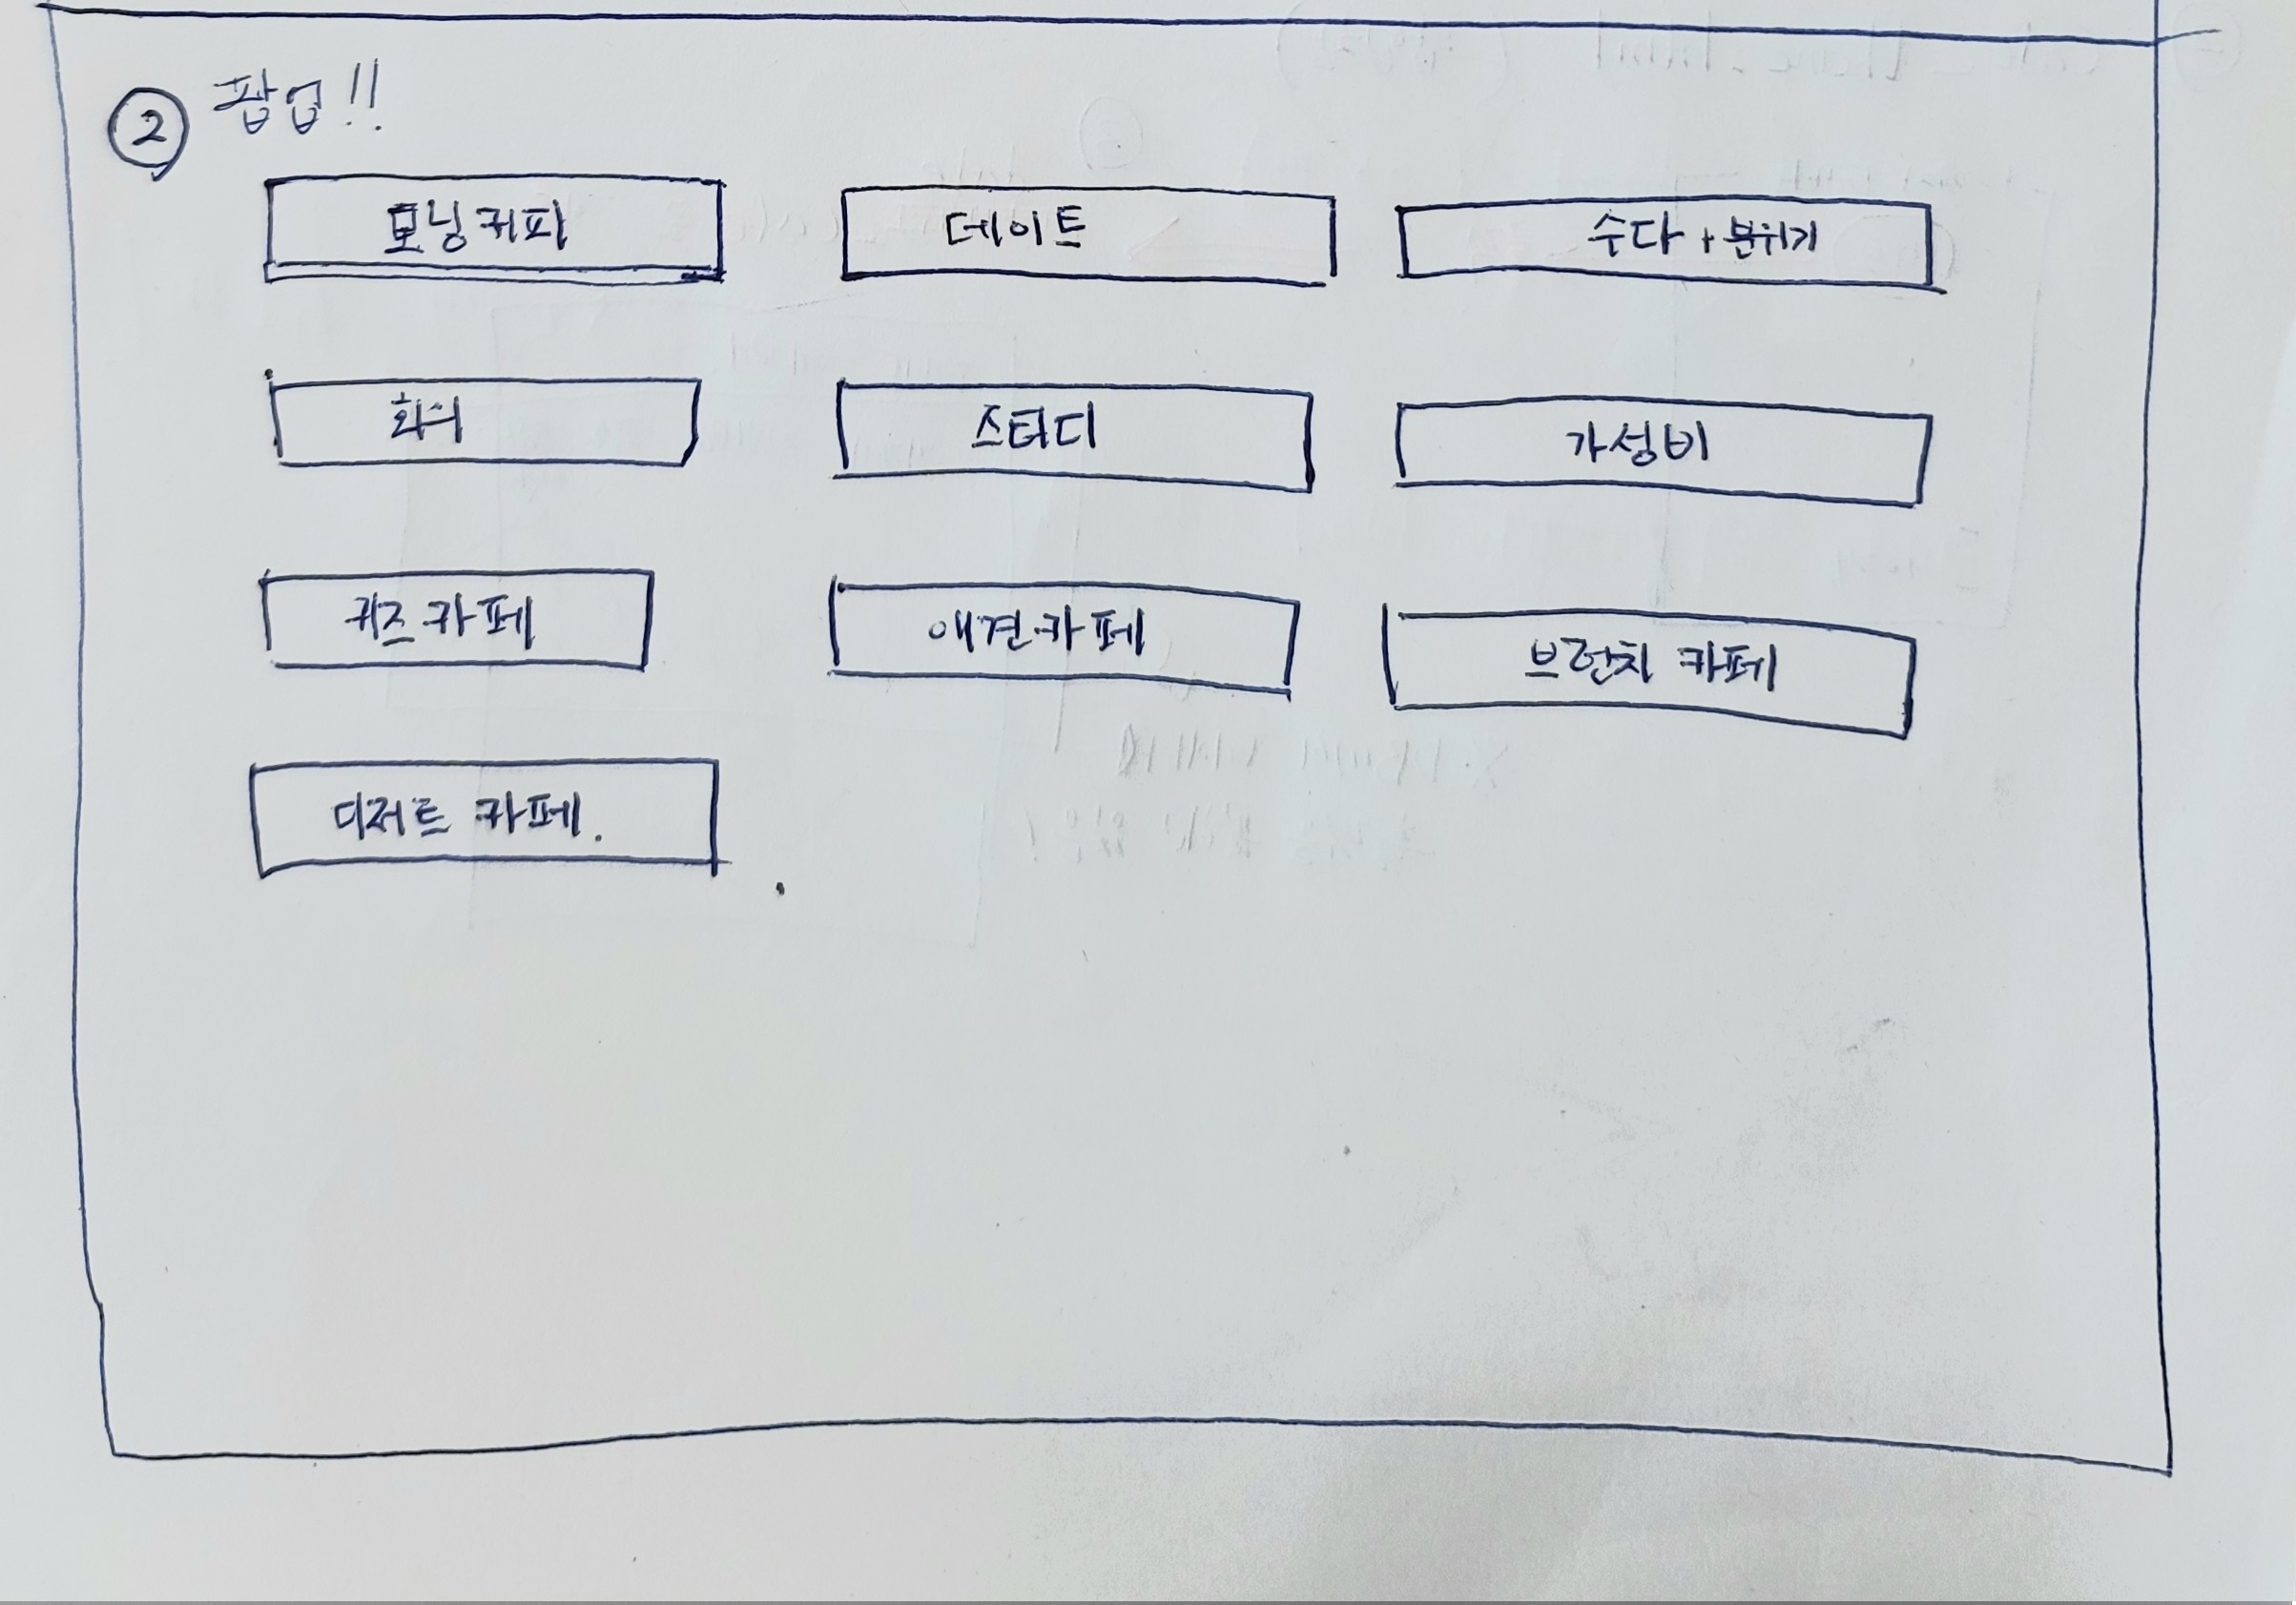 ② 팝업!!
모닝커피 데이트 수다 + 분위기
회의 스터디 가성비
퀴즈카페 애견카페 브런치 카페
디저트 카페.